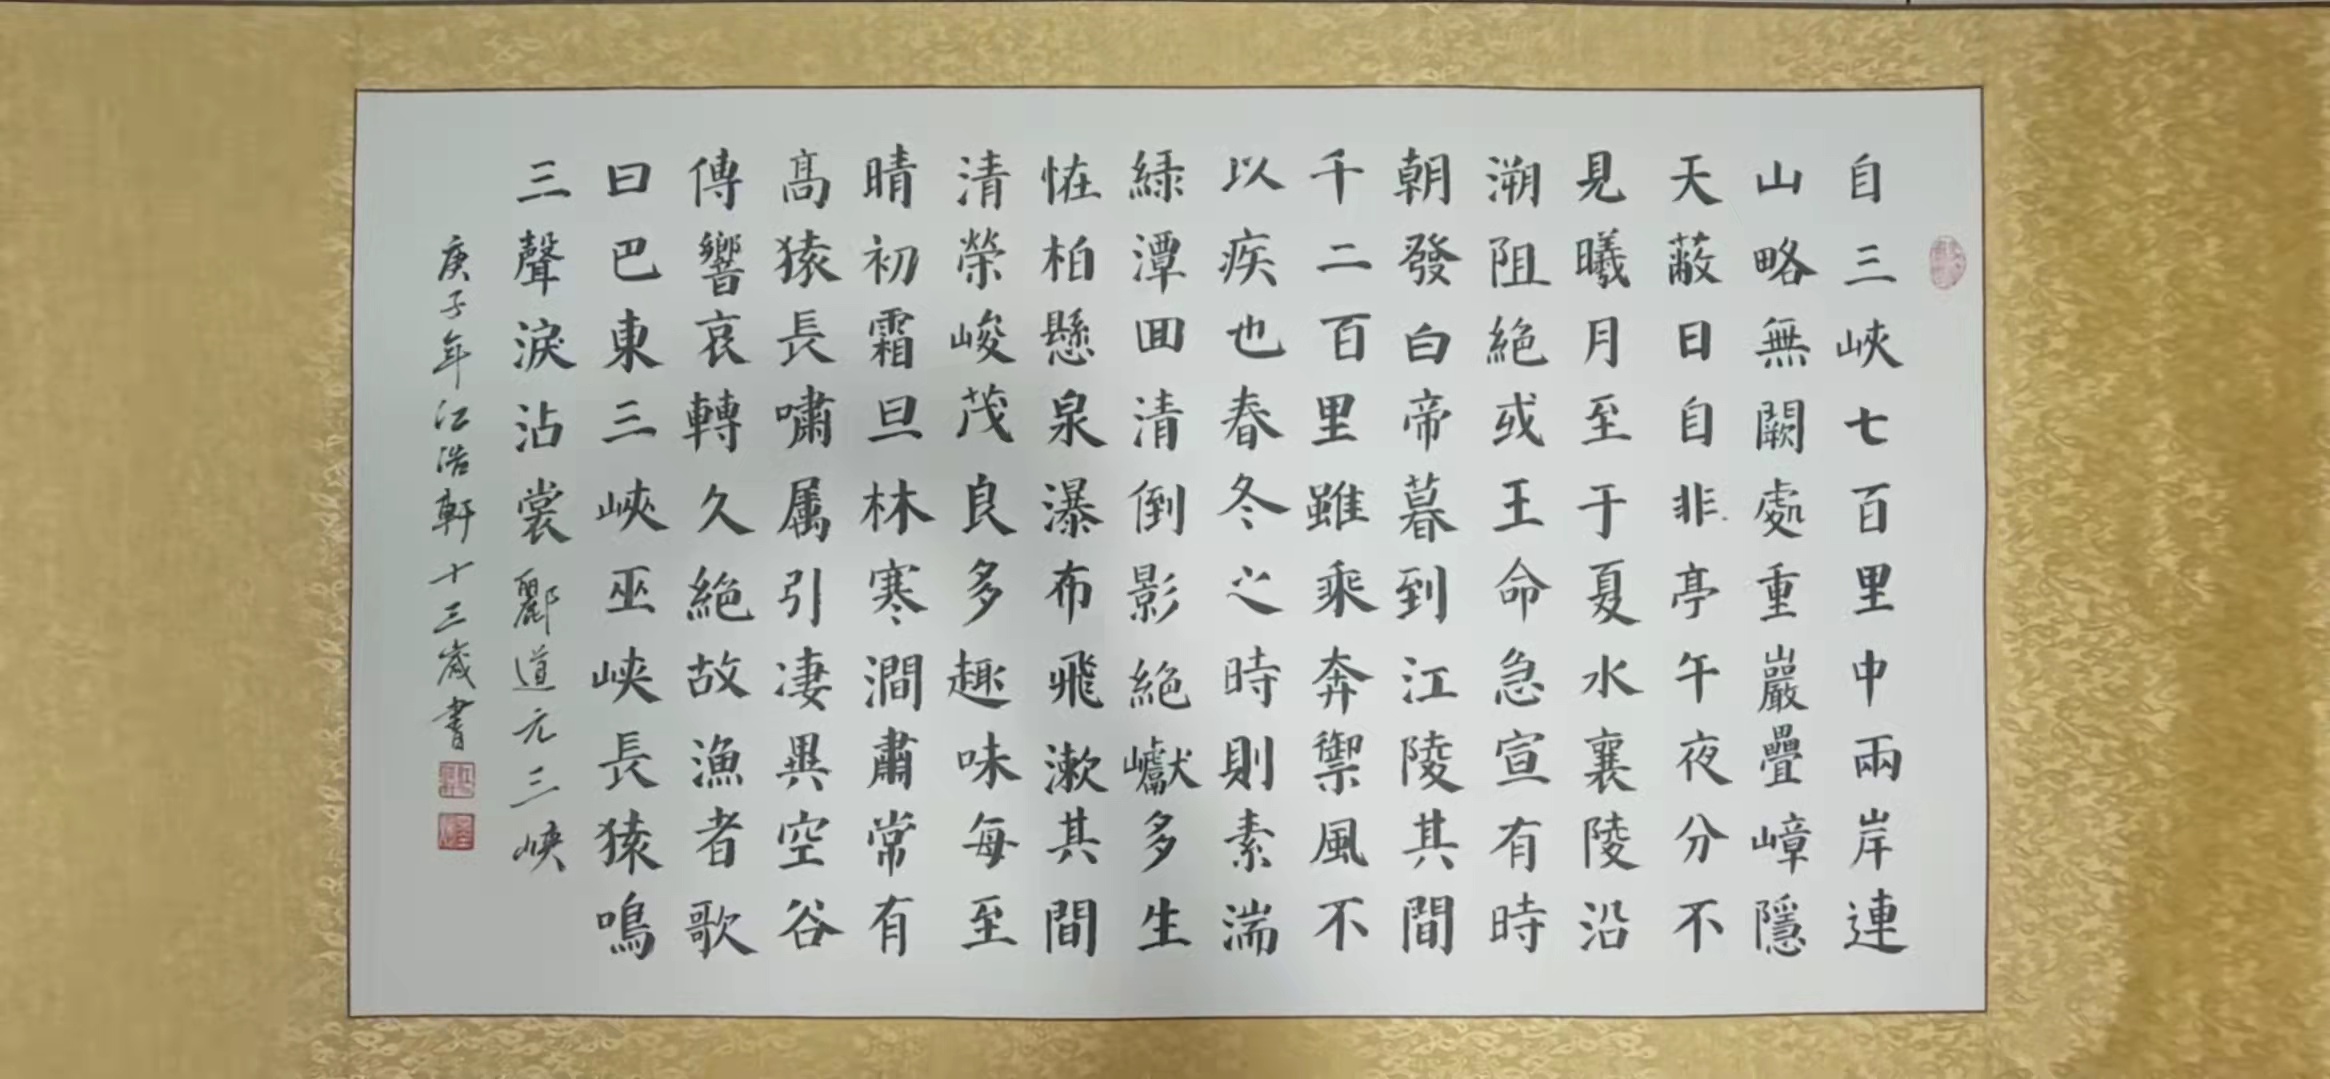 自三峽七百里中兩岸連
山略無闕處重巖疊嶂隱
天蔽日自非亭午夜分不
見曦月至于夏水襄陵沿
溯阻絕或王命急宣有時
朝發白帝暮到江陵其間
千二百里雖乘奔禦風不
以疾也春冬之時則素湍
綠潭回清倒影絕巘多生
恠柏懸泉瀑布飛漱其間
清榮峻茂良多趣味每至
晴初霜旦林寒澗肅常有
高猿長嘯属引凄異空谷
傳響哀轉久絕故漁者歌
曰巴東三峽巫峽長猿鳴
三聲淚沾裳 酈道元三峽
庚子年江浩軒十三歲書